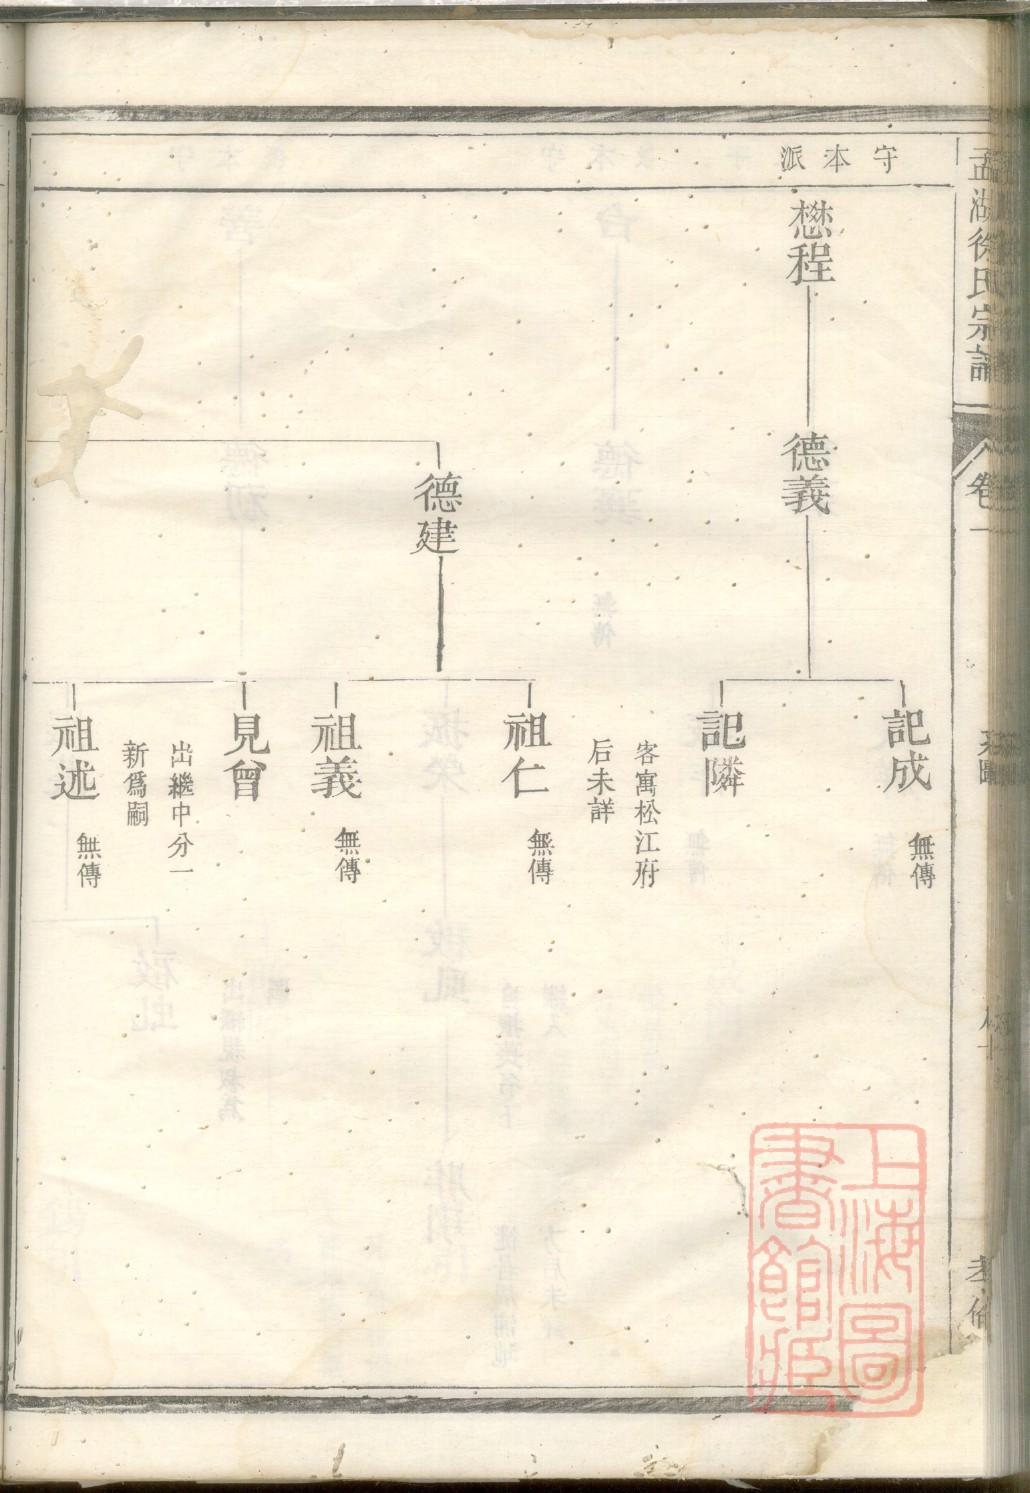 孟湖徐氏宗譜
卷一
守本派
懋程
德義
德建
記成
無傳
記隣
客寓松江府
后未詳
祖仁
無傳
祖義
無傳
見曾
出繼中分一
新爲嗣
祖述
無傳
上海圖
書館藏